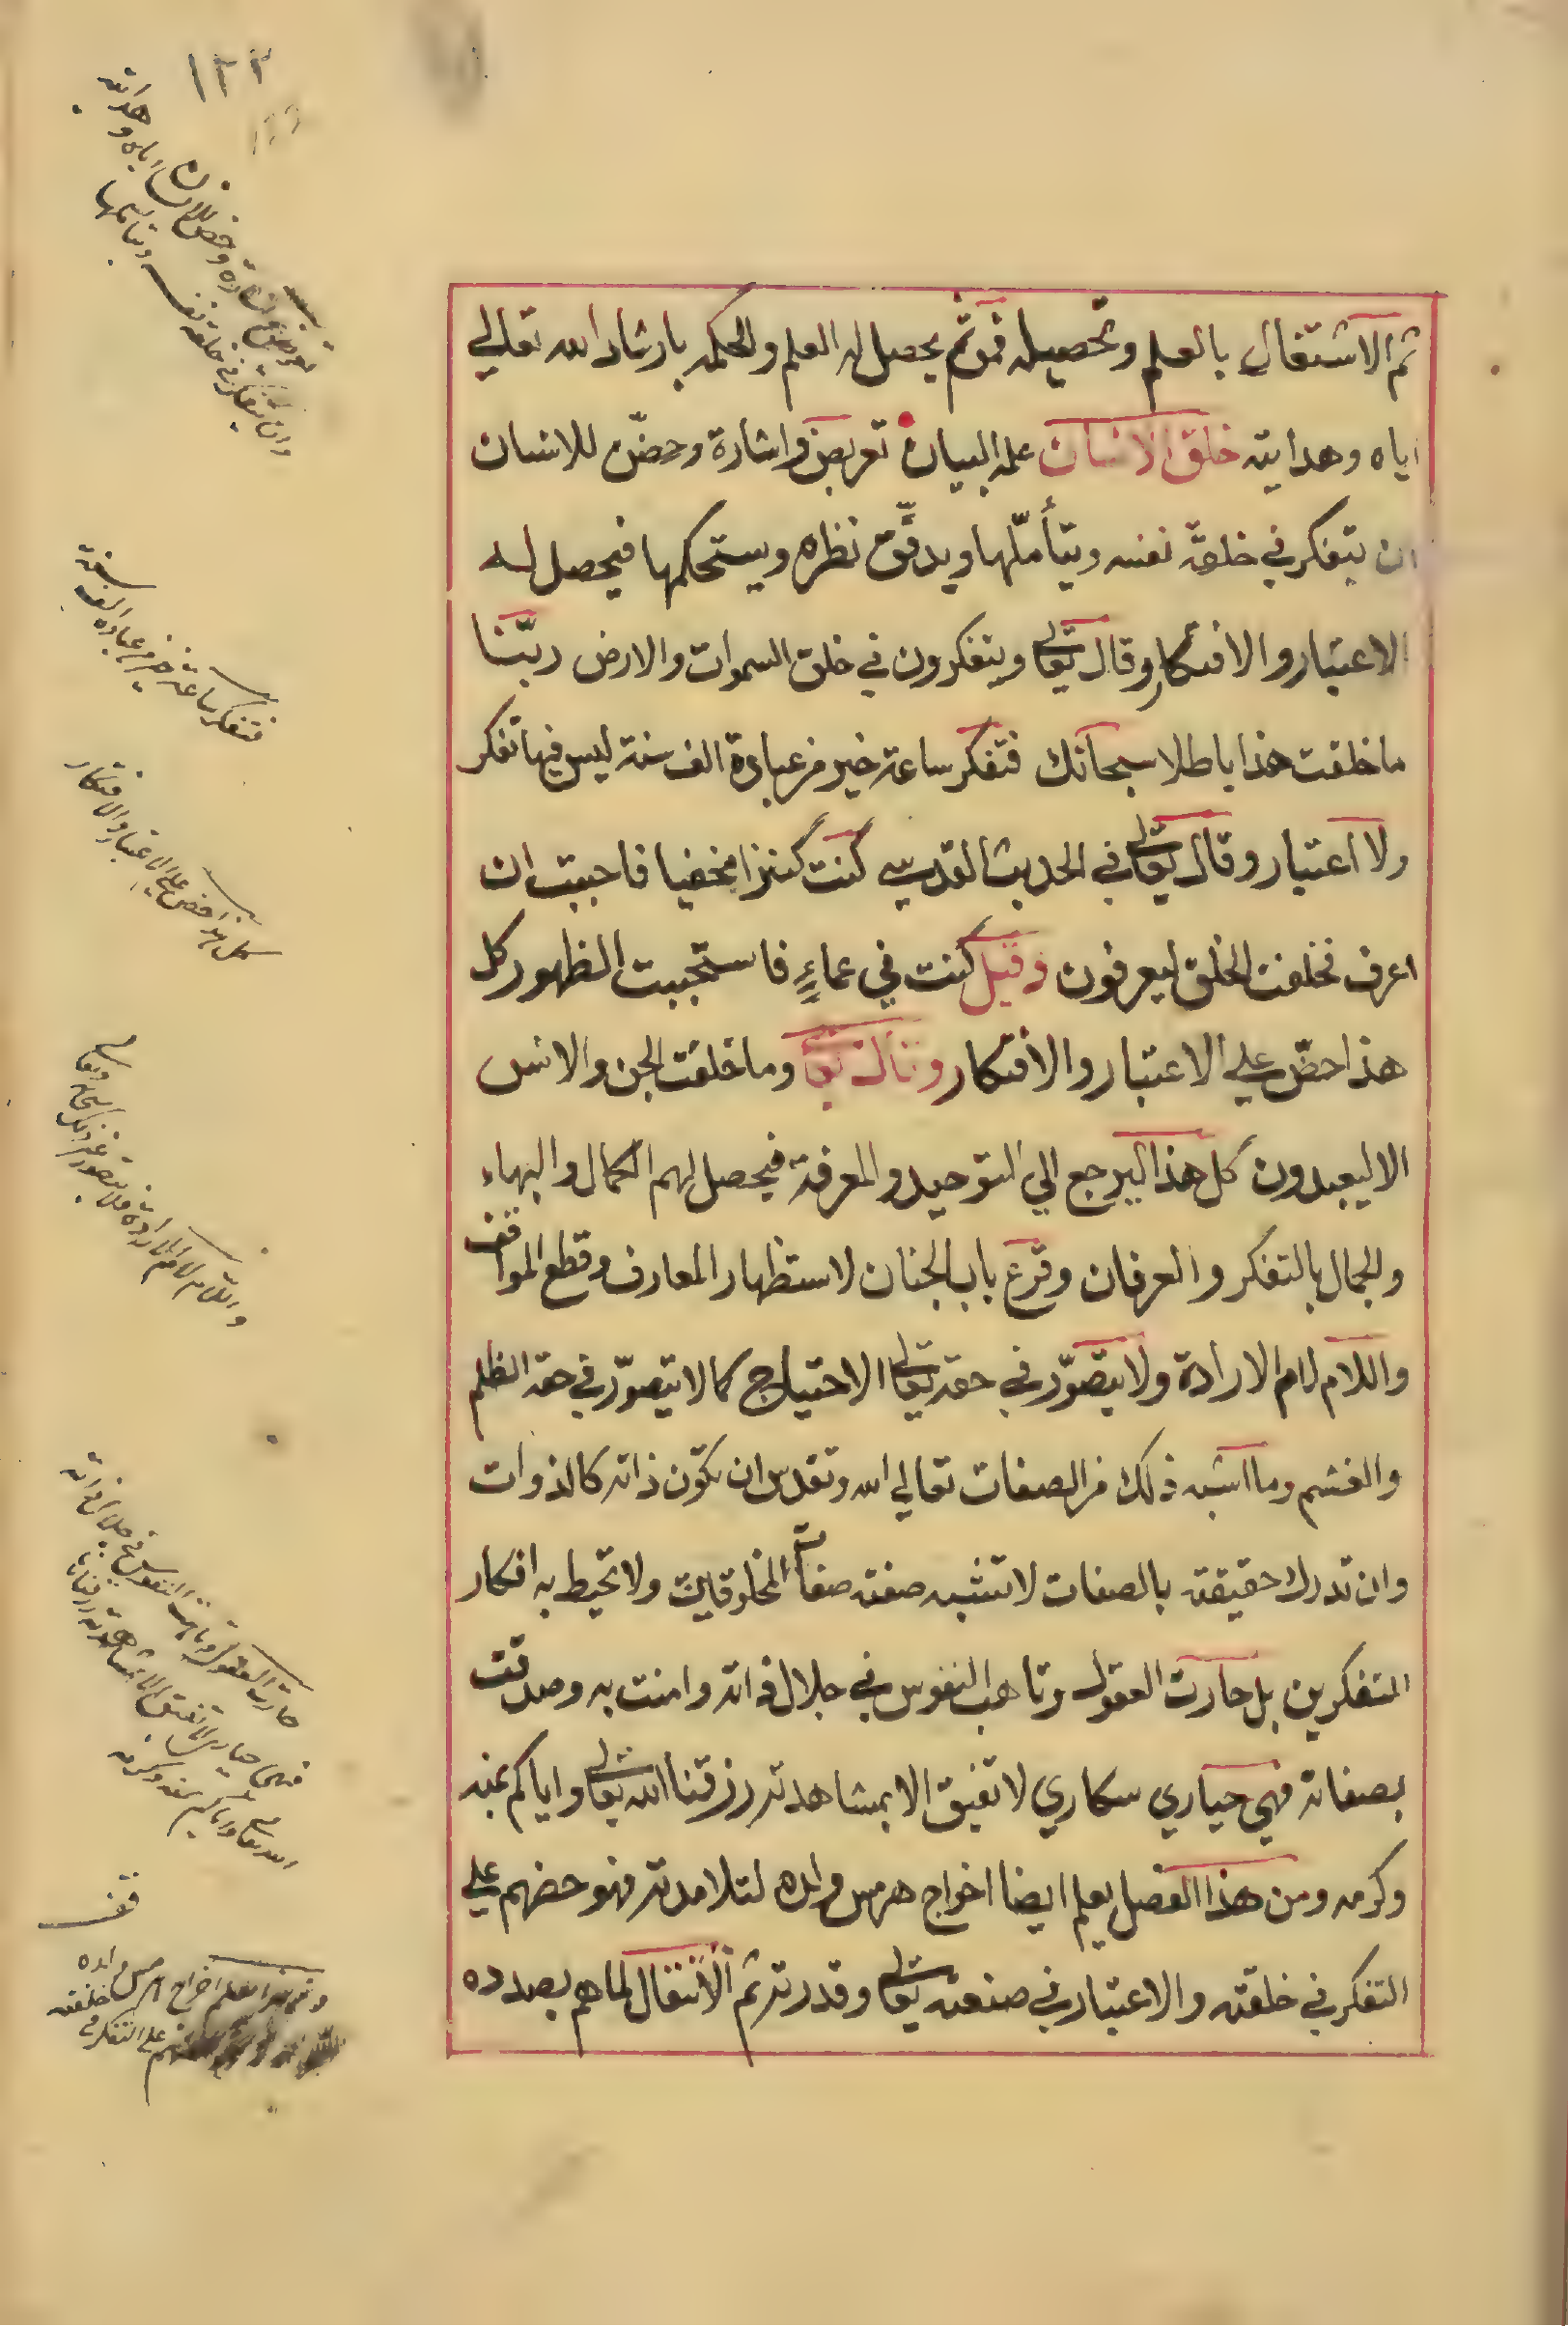 ١٢٢
ثم الاشتغال بالعلم وتحصيله فمن ثم يحصل له العلم والحكمه بارشاد الله تعالي
اياه وهدايته خلق الانسان علمه البيان تعريض واشارة وحضّ للانسان
ان يتفكر في خلقة نفسه ويتأملّها ويدقّق نظره ويستحكمها فيحصل له
الاعتبار والافتكار وقال تعالى ويتفكرون في خلق السموات والارض ربّنا
ما خلقت هذا باطلا سبحانك فتفكر ساعة خير من عبادة الف سنة ليس فيها تفكر
ولا اعتبار وقال تعالى في الحديث القدسي كنت كنزا مخفيا فاحببت ان
اعرف فخلقت الخلق ليعرفون وقيل كنت في عماءٍ فاستحببت الظهور كل
هذا حضّ علي الاعتبار والافتكار وقال تعا وما خلقت الجن والانس
الا ليعبدون كل هذا اليرجع الي التوحيد والمعرفة فيحصل لهم الكمال والبهاء
والجمال بالتفكر والعرفان وقرع باب الجنان لاستظهار المعارف وقطع المواقف
واللام لام الارادة ولا يتصوّر في حقه تعالى الاحتياج كما لا يتصوّر في حقه الظلم
والغشم وما اشبه ذلك من الصفات تعالي الله وتقدس ان تكون ذاته كالذوات
وان تدرك حقيقته بالصفات لا تشبه صفته صفات المخلوقين ولا تحيط به افكار
المتفكرين بل حارت العقول وتاهب النفوس في جلال ذاته وامنت به وصدقت
بصفاته فهي حياري سكاري لا تفيق الا بمشاهدته رزقنا الله تعالى واياكم بمنه
وكرمه ومن هذا الفصل يعلم ايضا اخراج هرمس ولده لتلامذته فهو حضهم علي
التفكر في خلقته والاعتبار في صنعته تعالى وقدرته ثم الانتقال لما هم بصدده
فتفكر ساعة خير من عبادة الف سنة
كل هذا حض علي الاعتبار والافتكار
واللام لام الارادة فلا يتصور
حارت العقول وتاهت النفوس في جلال ذاته
فهي حياري لا تفيق الا بمشاهدته رزقنا
الله تعا واياكم بمنه وكرمه
قف
علي التفكر في خلقته